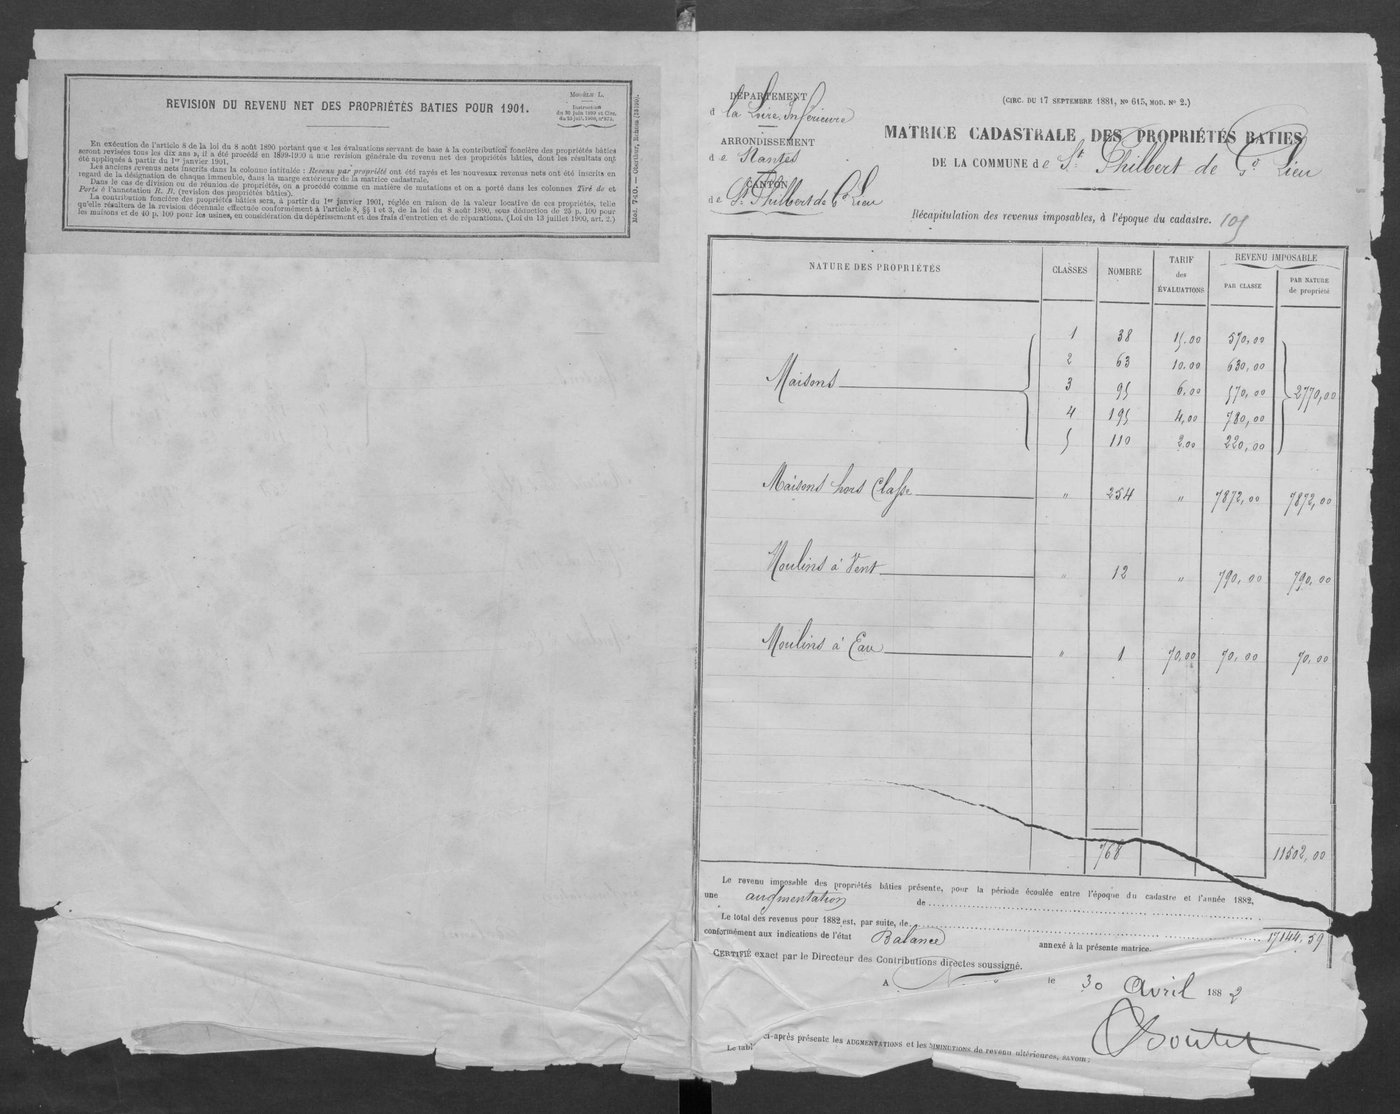 REVISION DU REVENU NET DES PROPRIÉTÉS BATIES POUR 1901.
MODÈLE L.
Instruction
du 30 juin 1899 et Circ.
En exécution de l'article 8 de la loi du 8 août 1890 portant que « les évaluations servant de base à la contribution foncière des propriétés bâties
seront revisées tous les dix ans », il a été procédé en 1899-1900 à une revision générale du revenu net des propriétés bâties, dont les résultats ont
été appliqués à partir du 1er janvier 1901.
Les anciens revenus nets inscrits dans la colonne intitulée : Revenu par propriété ont été rayés et les nouveaux revenus nets ont été inscrits en
regard de la désignation de chaque immeuble, dans la marge extérieure de la matrice cadastrale.
Dans le cas de division ou de réunion de propriétés, on a procédé comme en matière de mutations et on a porté dans les colonnes Tiré de et
Porté à l'annotation R. B. (revision des propriétés bâties).
La contribution foncière des propriétés bâties sera, à partir du 1er janvier 1901, réglée en raison de la valeur locative de ces propriétés, telle
qu'elle résultera de la revision décennale effectuée conformément à l'article 8, §§ 1 et 3, de la loi du 8 août 1890, sous déduction de 25 p. 100 pour
les maisons et de 40 p. 100 pour les usines, en considération du dépérissement et des frais d'entretien et de réparations. (Loi du 13 juillet 1900, art. 2.)
DÉPARTEMENT
d la Loire Inférieure
ARRONDISSEMENT
de Nantes
CANTON
de St Philbert de Gd Lieu
(CIRC. DU 17 SEPTEMBRE 1881, No 615, MOD. No 2.)
MATRICE CADASTRALE DES PROPRIÉTÉS BATIES
DE LA COMMUNE de St Philbert de Gd Lieu
Récapitulation des revenus imposables, à l'époque du cadastre. 105
NATURE DES PROPRIÉTÉS CLASSES NOMBRE TARIF des ÉVALUATIONS REVENU IMPOSABLE PAR CLASSE PAR NATURE de propriété
1 38 15.00 570,00
2 63 10.00 630,00
Maisons 3 95 6.00 570,00 2770,00
4 195 4,00 780,00
5 110 2.00 220,00
Maisons hors Classe " 254 " 7872,00 7872,00
Moulins à Vent " 12 " 790,00 790,00
Moulins à Eau " 1 70,00 70,00 70,00
768 11502,00
Le revenu imposable des propriétés bâties présente, pour la période écoulée entre l'époque du cadastre et l'année 1882,
une augmentation de
Le total des revenus pour 1882 est, par suite, de 17144,59
conformément aux indications de l'état Balance annexé à la présente matrice.
CERTIFIÉ exact par le Directeur des Contributions directes soussigné.
A le 30 Avril 1882
Le tabl ci-après présente les AUGMENTATIONS et les DIMINUTIONS de revenu ultérieures, SAVOIR :